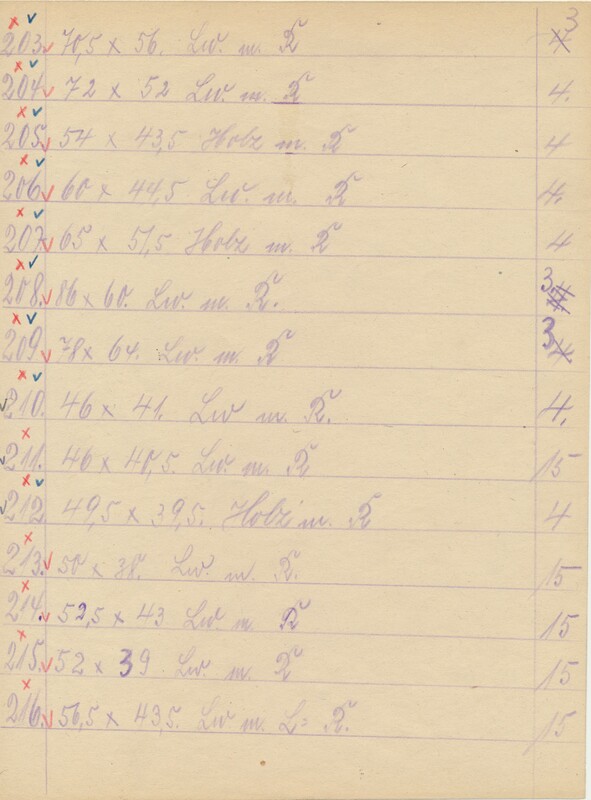 203. 70,5 x 56. Lw. m. R 3
204. 72 x 52 Lw. m. R 4.
205. 54 x 43,5 Holz m. R 4
206. 60 x 44,5 Lw. m. R 4.
207. 65 x 51,5 Holz m. R 4
208. 86 x 60. Lw. m. R. 3
209. 78 x 64. Lw. m. R 3
210. 46 x 41. Lw m. R. 4.
211. 46 x 40,5. Lw. m. R 15
212. 49,5 x 39,5. Holz m. R 4
213. 50 x 38. Lw. m. R. 15
214. 52,5 x 43 Lw m. R 15
215. 52 x 39 Lw. m. R 15
216. 56,5 x 43,5. Lw m. L= R. 15